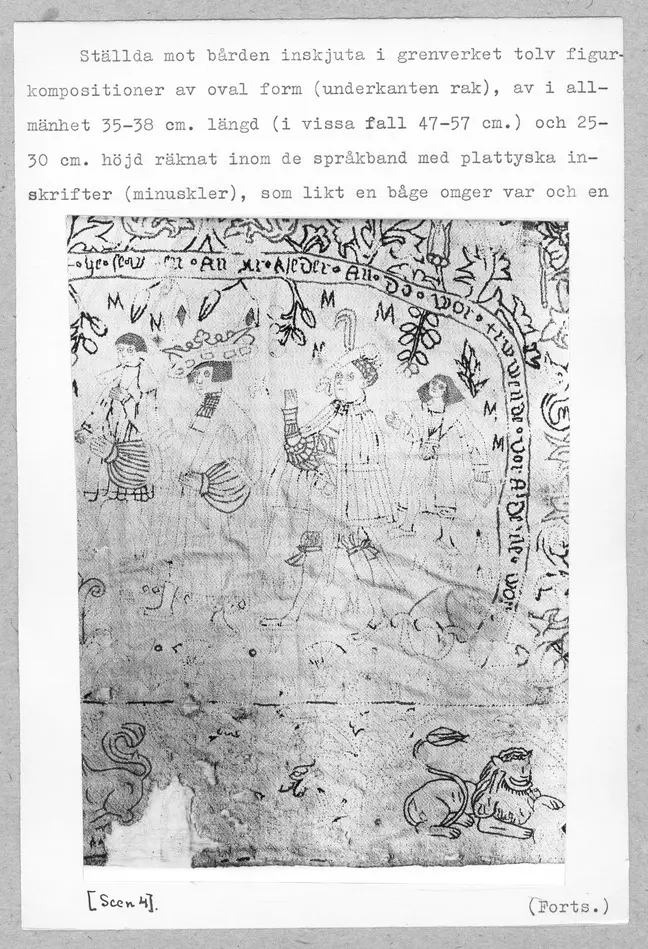 Ställda mot bården inskjuta i grenverket tolv figur-
kompositioner av oval form (underkanten rak), av i all-
mänhet 35-38 cm. längd (i vissa fall 47-57 cm.) och 25-
30 cm. höjd räknat inom de språkband med plattyska in-
skrifter (minuskler), som likt en båge omger var och en
M N M N M M M
[Scen 4].
(Forts.)